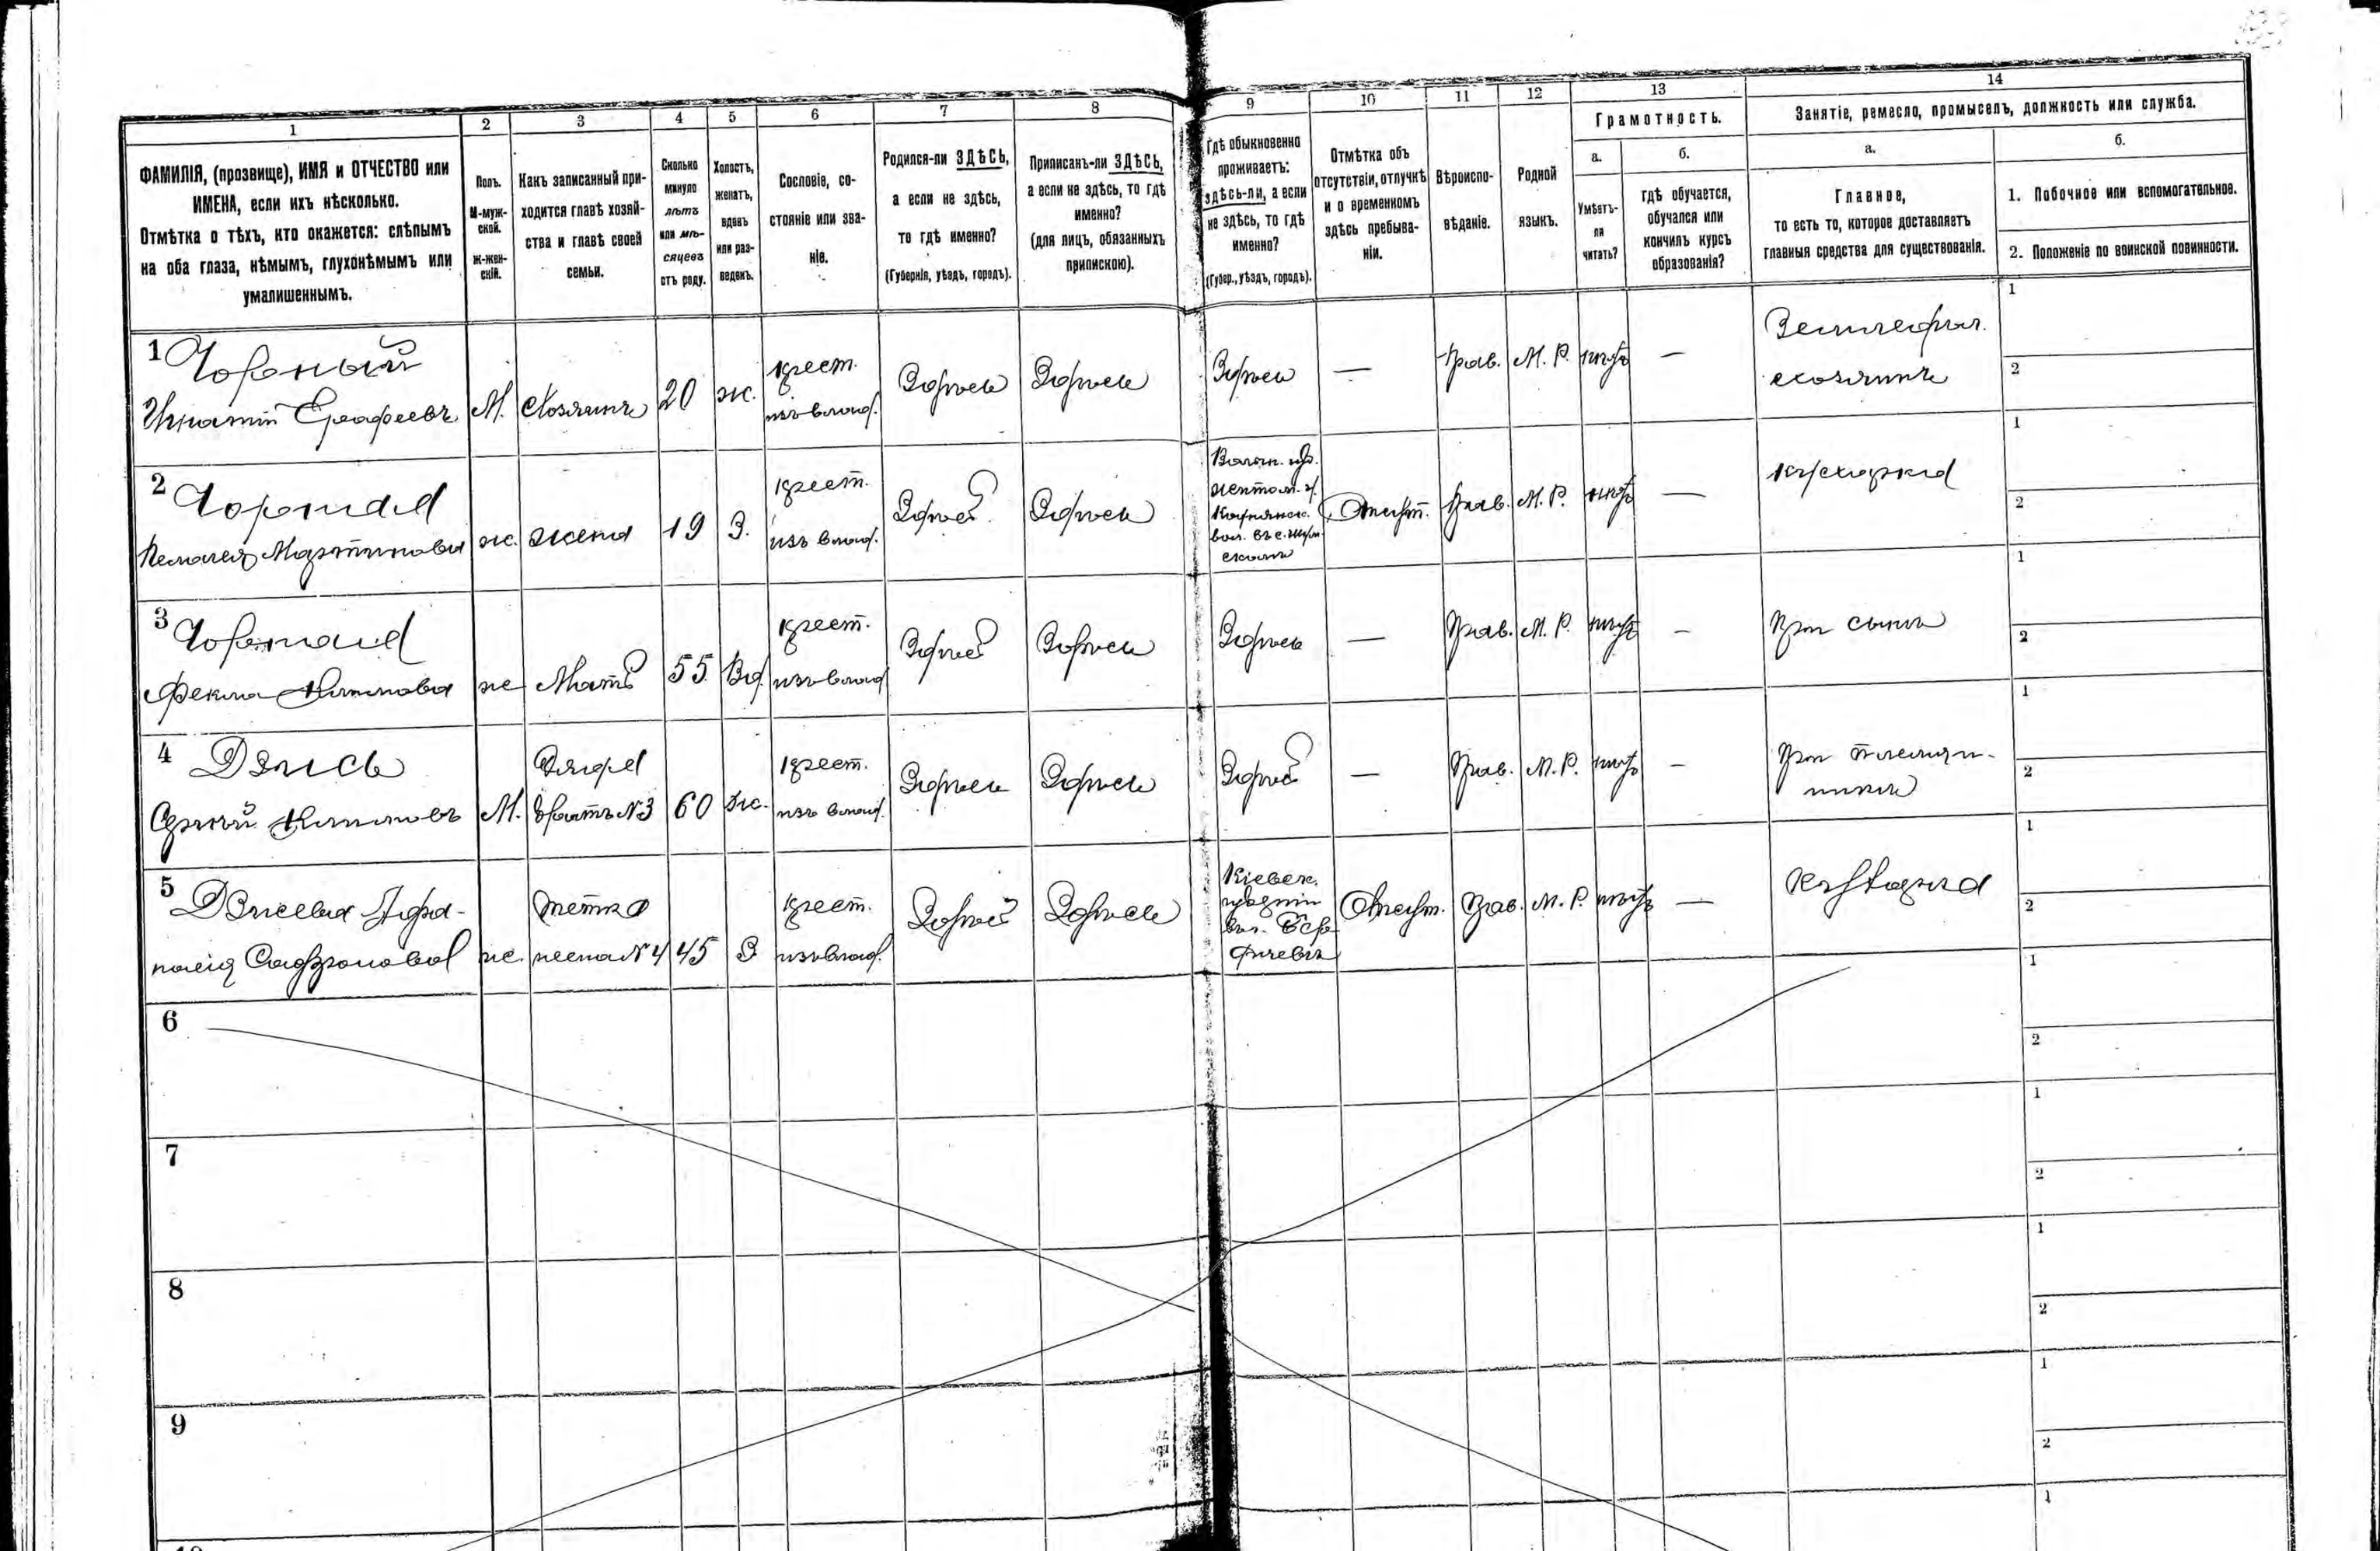 1 2 3 4 5 6 7 8 9 10 11 12 13 14
ФАМИЛІЯ, (прозвище), ИМЯ и ОТЧЕСТВО или
ИМЕНА, если ихъ нѣсколько.
Отмѣтка о тѣхъ, кто окажется: слѣпымъ
на оба глаза, нѣмымъ, глухонѣмымъ или
умалишеннымъ.
Полъ.
М-муж-
ской.
Ж-жен-
скій.
Какъ записанный при-
ходится главѣ хозяй-
ства и главѣ своей
семьи.
Сколько
минуло
лѣтъ
или мѣ-
сяцевъ
отъ роду.
Холостъ,
женатъ,
вдовъ
или раз-
веденъ.
Сословіе, со-
стояніе или зва-
ніе.
Родился-ли ЗДѢСЬ,
а если не здѣсь,
то гдѣ именно?
(Губернія, уѣздъ, городъ).
Приписанъ-ли ЗДѢСЬ,
а если не здѣсь, то гдѣ
именно?
(для лицъ, обязанныхъ
припискою).
Гдѣ обыкновенно
проживаетъ:
здѣсь-ли, а если
не здѣсь, то гдѣ
именно?
(Губер., уѣздъ, городъ).
Отмѣтка объ
отсутствіи, отлучкѣ
и о временномъ
здѣсь пребыва-
ніи.
Вѣроиспо-
вѣданіе.
Родной
языкъ.
Грамотность.
а.
Умѣетъ-
ли
читать?
б.
Гдѣ обучается,
обучался или
кончилъ курсъ
образованія?
Занятіе, ремесло, промыселъ, должность или служба.
а.
Главное,
то есть то, которое доставляетъ
главныя средства для существованія.
б.
1. Побочное или вспомогательное.
2. Положеніе по воинской повинности.
1 Чорный крест. Землед.
Игнатій Ерофеевъ М. Хозяинъ 20 ж. изъ влад. Здѣсь Здѣсь Здѣсь — Прав. М. Р. нѣтъ — хозяинъ
1
2
2 Чорная крест. Волын. губ.
Мартинова ж. жена 19 З. изъ влад. Здѣсь Здѣсь Отсут. Прав. М. Р. нѣтъ — кухарка
1
2
3 Чорная крест.
Фекла Климова ж Мать 55 Вд. изъ влад Здѣсь Здѣсь Здѣсь — Прав. М. Р. нѣтъ — При сынѣ
1
2
4 Дзись Дядя крест. При племян-
Климовъ М. братъ №3 60 ж. изъ влад. Здѣсь Здѣсь Здѣсь — Прав. М. Р. нѣтъ — никѣ
1
2
5 тетка крест. Кіевск.
жена №4 45 З изъ влад. Здѣсь Здѣсь губерніи Отсут. Прав. М. Р. нѣтъ — кухарка
Бердичевъ
1
2
6
1
2
7
1
2
8
1
2
9
1
2
1